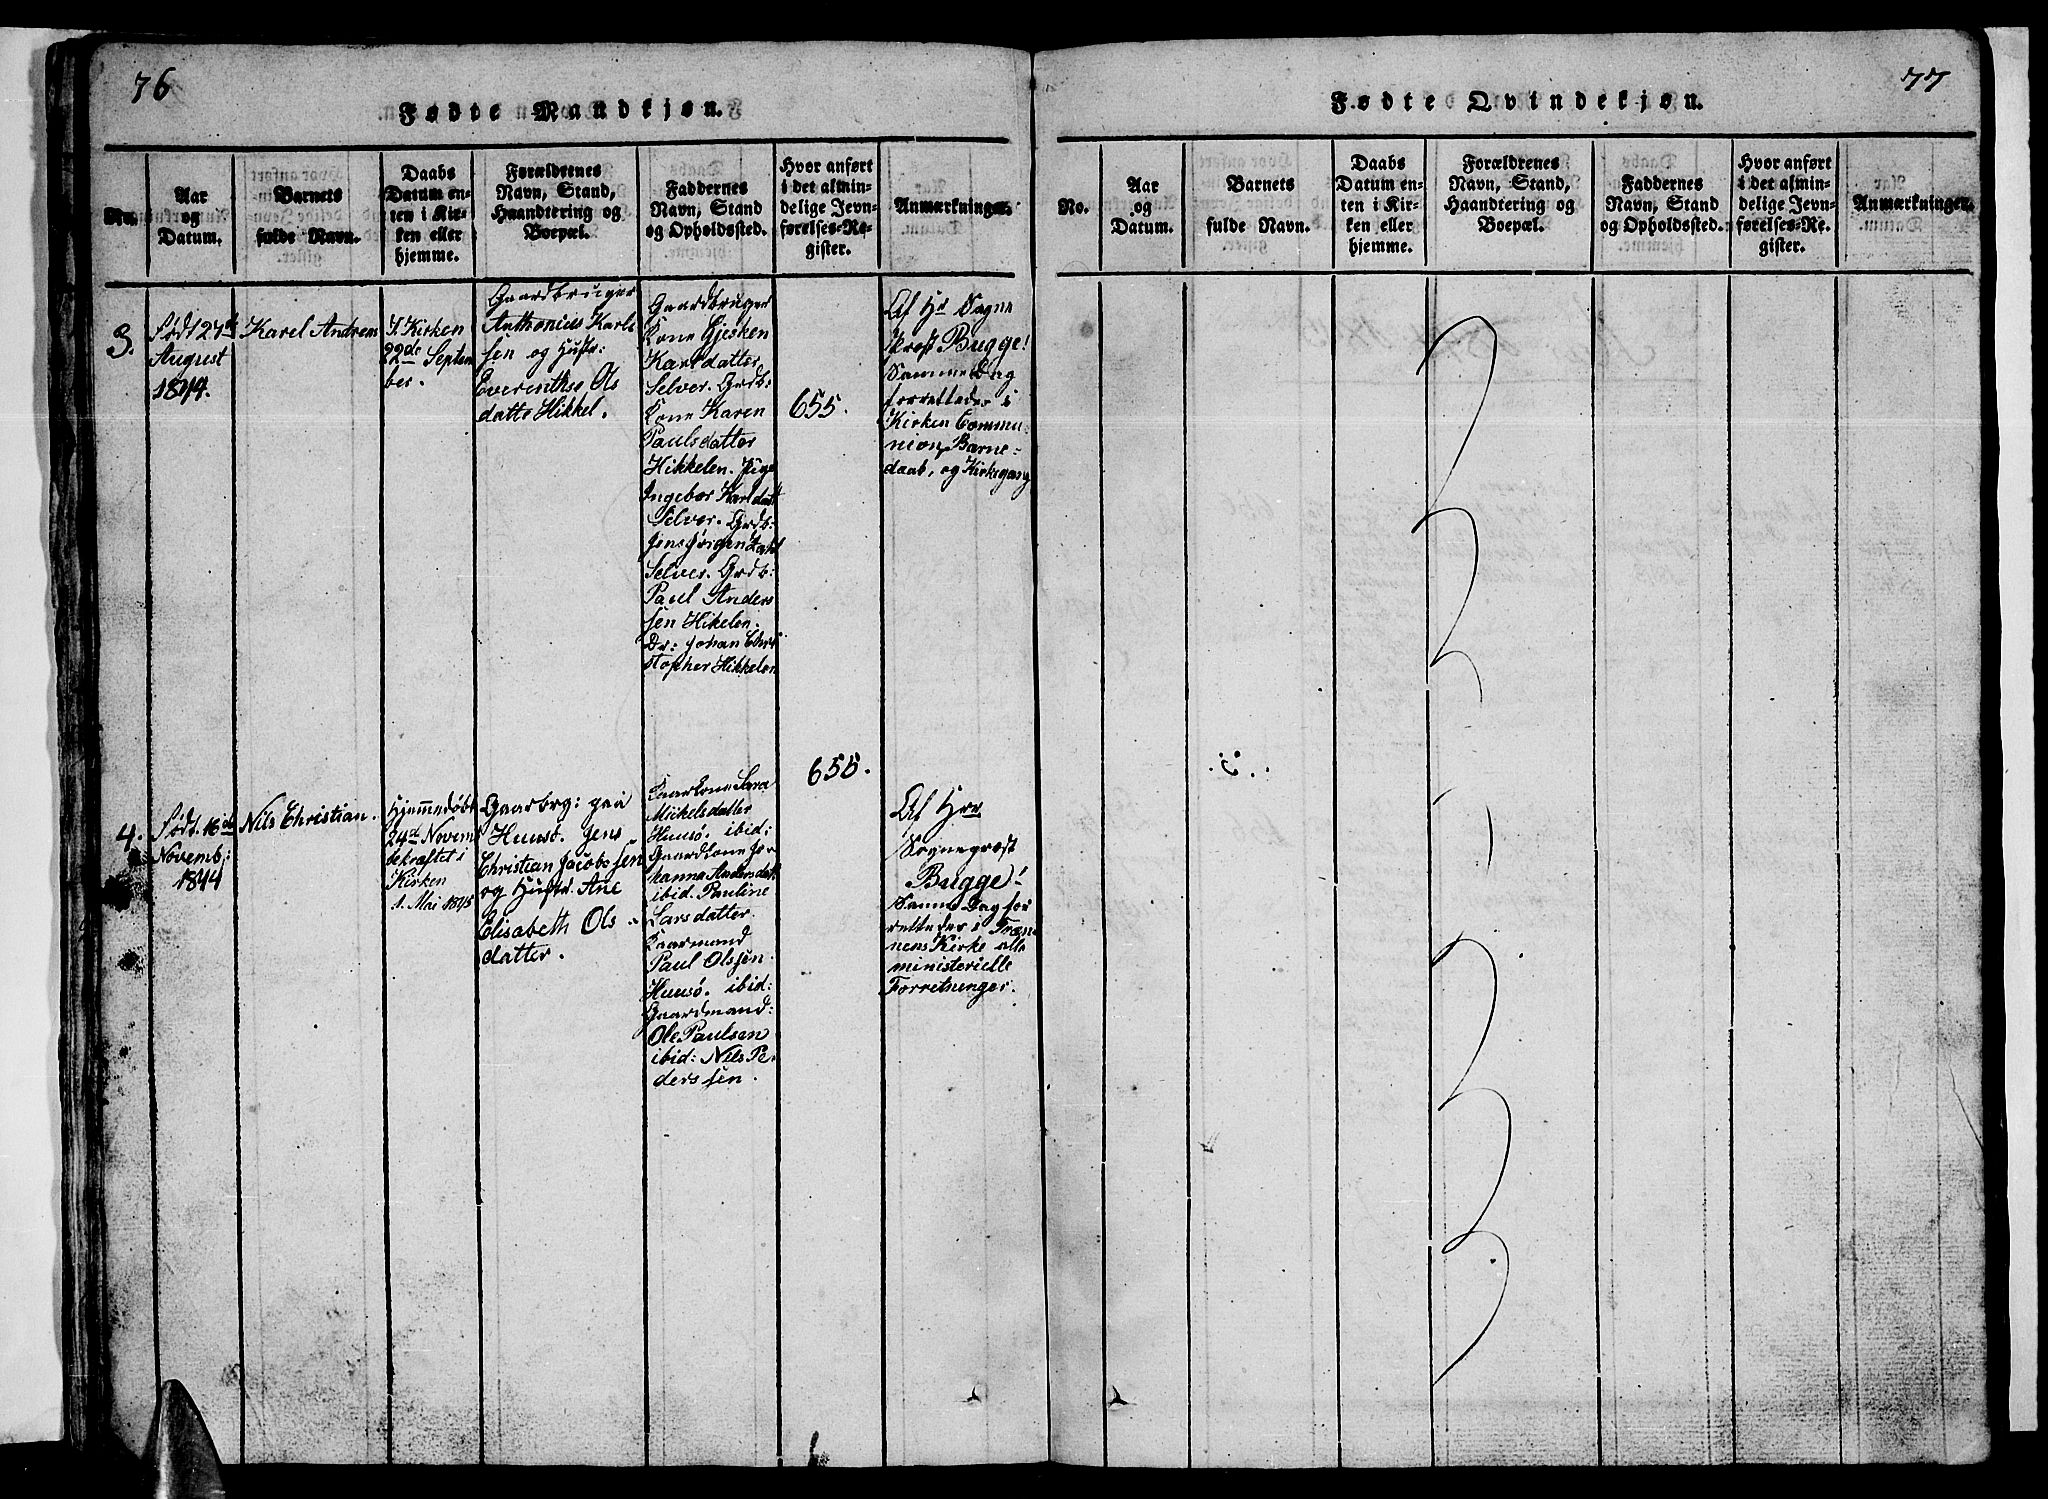 76
Fødte Mandkjøn.
No.
Aar
og
Datum.
Barnets
fulde Navn.
Daabs
Datum en-
ten i Kir-
ken eller
hjemme.
Forældrenes
Navn, Stand,
Haandtering og
Boepæl.
Faddernes
Navn, Stand
og Opholdssted.
Hvor anført
i det almin-
delige Jevn-
førelses-Re-
gister.
Anmærkninger.
3.
Født 27de
August
1844.
Karel Andreas
I Kirken
22de Septem
ber.
Gaardbruger
Anthonius Karls
sen og Hustr:
Everenthse Ols
datte Hikkel.
Gaardbruger
Kone Gjesken
Karlsdatter
Selver. Grdb:
Kone Karen
Paulsdatter
Hikkelen. Pige
Ingebor Karlsdatt
Selver. Grdb:
Jens Jørgen
Selver. Grdb:
Paul Anders
sen Hikelen.
Dr: Johan Chri
stopher Hikkelen
655.
Af Hr Sogne
Prost Bugge!
Samme Dag
forrettedes i
Kirken Commu-
nion, Barne-
daab, og Kirkegang
4.
Født 16de
Novemb:
1844
Nils Christian.
Hjemmedøbt
24de Novemb
bekræftet i
Kirken
1. Mai 1845
Gaarbrg: paa
Huusø. Jens
Christian Jacobssen
og Hustr. Ane
Elisabeth Ols-
datter.
Gaar Kone Sara
Mikelsdatter
Huusø. ibid:
Gaard Kone Jo-
hanna Andersdatt
ibid. Pauline
Larsdatter.
Gaarmand
Paul Olssen.
Huusø. ibid:
Gaardmand:
Ole Paulsen
ibid: Nils Pe-
derssen.
655.
Af Hrr
Sogneprost
Bugge!
Samme Dag for
rettedes i Træn-
nens Kirke alle
ministerielle
Forretninger.
77
Fødte Qvindekjøn.
No.
Aar
og
Datum.
Barnets
fulde Navn.
Daabs
Datum en-
ten i Kir-
ken eller
hjemme.
Forældrenes
Navn, Stand,
Haandtering og
Boepæl.
Faddernes
Navn, Stand
og Opholdssted.
Hvor anført
i det almin-
delige Jevn-
førelses-Re-
gister.
Anmærkninger.